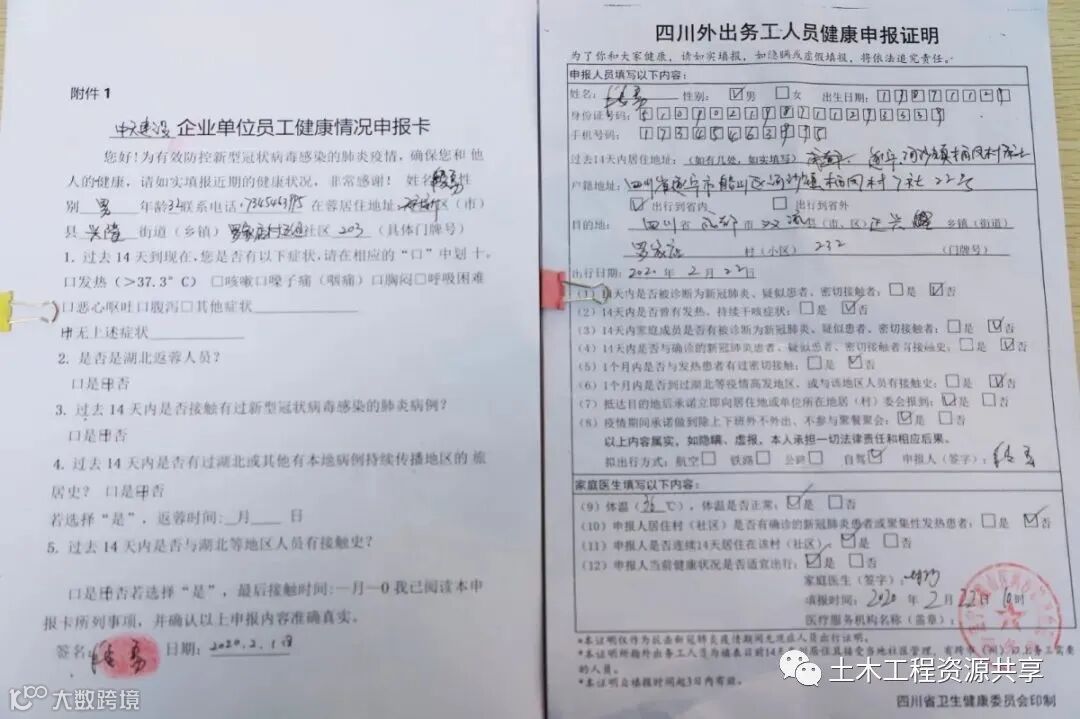 附件1
中天建设 企业单位员工健康情况申报卡
您好!为有效防控新型冠状病毒感染的肺炎疫情,确保您和 他
人的健康,请如实填报近期的健康状况,非常感谢! 姓名 性
别 男 年龄32联系电话: 在蓉居住地址: 区(市)
县 兴隆 街道(乡镇) 社区 203 (具体门牌号)
1. 过去14天到现在,您是否有以下症状,请在相应的“口”中划 十。
口发热(>37.3°C) 口咳嗽口嗓子痛(咽痛)口胸闷口呼吸困难
口恶心呕吐口腹泻口其他症状
无上述症状
2. 是否是湖北返蓉人员?
口是 否
3. 过去14天内是否接触有过新型冠状病毒感染的肺炎病例?
口是 否
4. 过去14天内是否有过湖北或其他有本地病例持续传播地区的 旅
居史? 口是 否
若选择“是”,返蓉时间: 月 日
5. 过去14天内是否与湖北等地区人员有接触史?
口是 否若选择“是”,最后接触时间:一月一0我已阅读本申
报卡所列事项,并确认以上申报内容准确真实。
签名: 日期: 2020.2.
四川外出务工人员健康申报证明
为了你和大家健康,请如实填报,如隐瞒或虚假填报,将依法追究责任。
申报人员填写以下内容:
姓名: 性别: 男 女 出生日期:
身份证号码:
手机号码:
过去14天内居住地址:(如有几处,如实填写) 遂宁 河沙镇梧冈村
户籍地址: 四川省遂宁市船山区河沙镇梧冈村 社 22号
出行到省内 出行到省外
目的地: 四川 省 成都 市 双流 县(市、区) 正兴 乡镇(街道)
罗家店 村(小区) 232 (门牌号)
出行日期: 2020 年 2 月 22 日
(1)14天内是否被诊断为新冠肺炎、疑似患者、密切接触者: 是 否
(2)14天内是否曾有发热、持续干咳症状: 是 否
(3)14天内家庭成员是否有被诊断为新冠肺炎、疑似患者、密切接触者: 是 否
(4)14天内是否与确诊的新冠肺炎患者、疑似患者、密切接触者有接触史: 是 否
(5)1个月内是否与发热患者有过密切接触: 是 否
(6)1个月内是否到过湖北等疫情高发地区、或与该地区人员有接触史: 是 否
(7)抵达目的地后承诺立即向居住地或单位所在地居(村)委会报到: 是 否
(8)疫情期间承诺做到除上下班外不外出、不参与聚餐聚会: 是 否
以上内容属实,如隐瞒、虚报,本人承担一切法律责任和相应后果。
拟出行方式:航空 铁路 公路 自驾 申报人(签字):
家庭医生填写以下内容:
(9)体温( 36 ℃),体温是否正常: 是 否
(10)申报人居住村(社区)是否有确诊的新冠肺炎患者或聚集性发热患者: 是 否
(11)申报人是否连续14天居住在该村(社区): 是 否
(12)申报人当前健康状况是否适宜出行: 是 否
家庭医生(签字):
填报时间: 2020 年 2 月 22 日 10 时
医疗服务机构名称(盖章):
*本证明仅作为抗击新冠肺炎疫情期间无流症人员出行证明。
*本证明所称外出务工人员为填表日前14天
的人员。
*本证明自填报时间起3日内有效。
四川省卫生健康委员会印制
土木工程资源共享
大数跨境